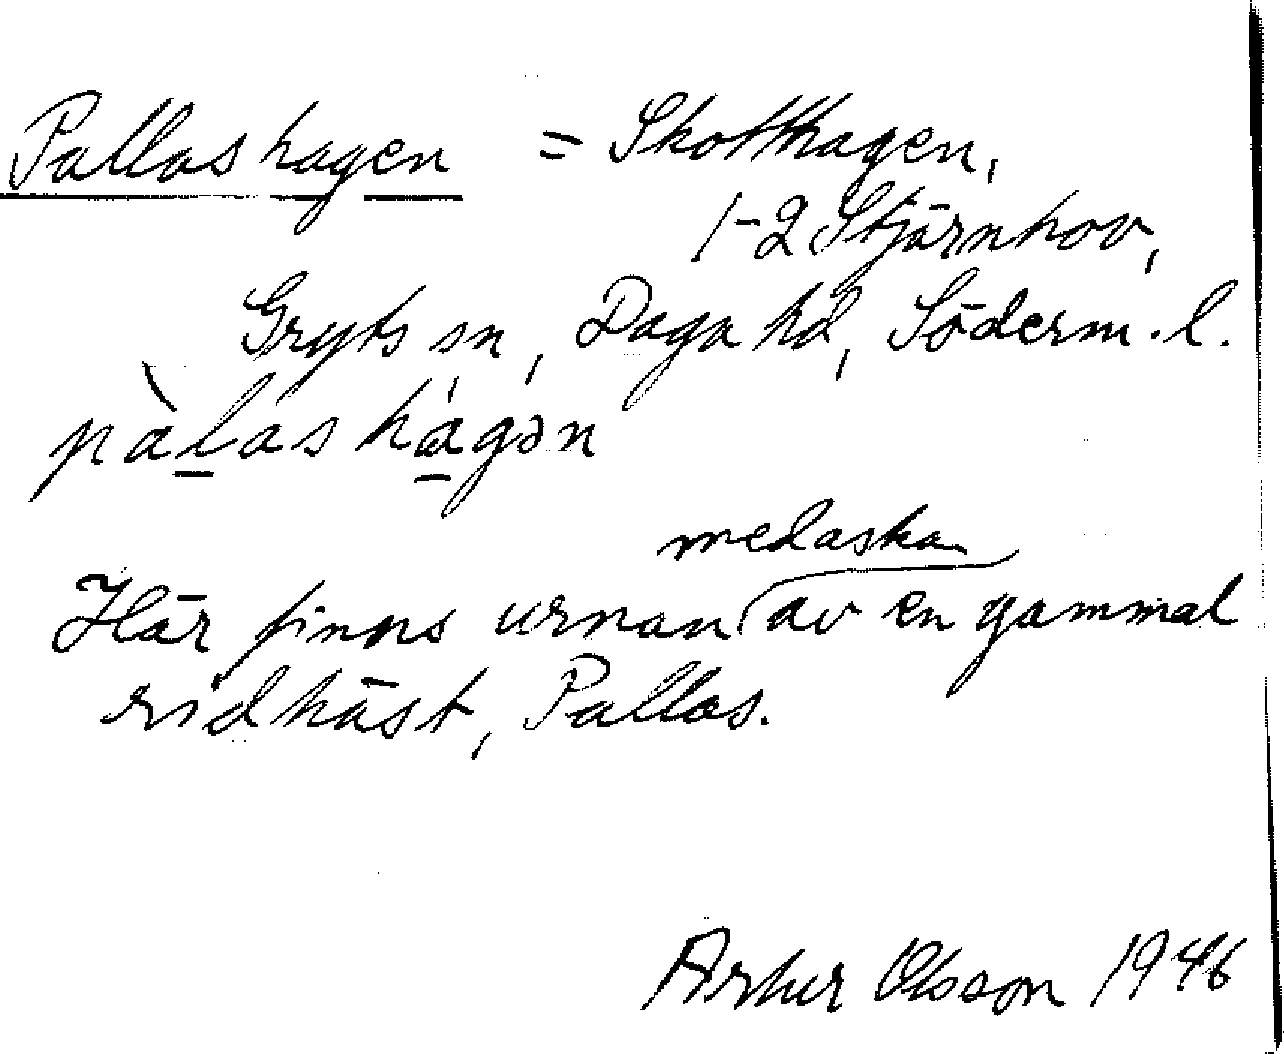 Pallashagen = Skotthagen,
1-2 Stjärnhov,
Gryts sn, Daga hd, Söderm. l.
pàlas hágən
medaska
Här finns urnan av en gammal
ridhäst, Pallas.
Artur Olsson 1946